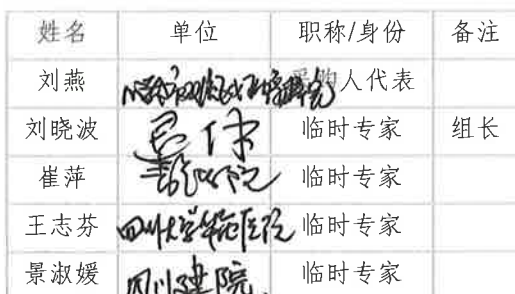 姓名 单位 职称/身份 备注
刘燕 采购人代表
刘晓波 临时专家 组长
崔萍 临时专家
王志芬 四川大学华西医院 临时专家
景淑媛 四川建院 临时专家